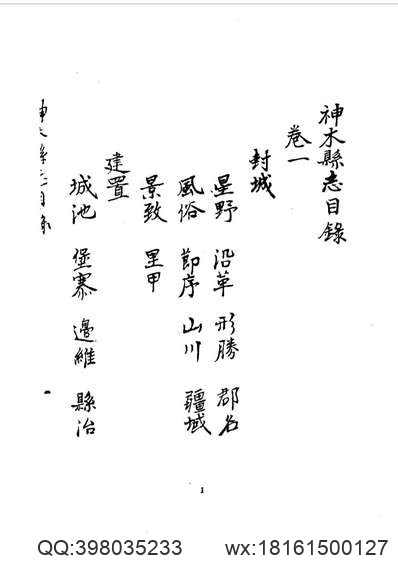 神木縣志目錄
卷一
封城
星野 沿革 形勝 郡名
風俗 節序 山川 疆域
景致 里甲
建置
城池 堡寨 邊維 縣治
1
QQ:398035233 wx:18161500127